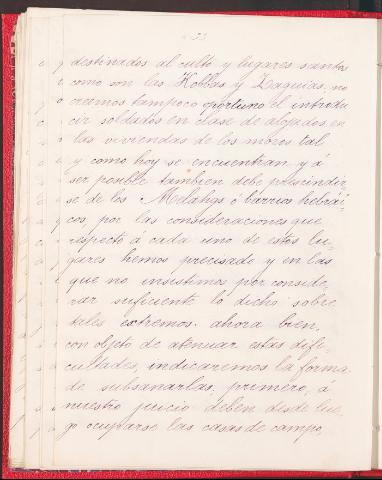 33
destinados al culto y lugares santos
como son las Kobbas y Zaquias, no
creemos tampoco oportuno el introdu
cir soldados en clase de alojados en
las viviendas de los moros tal
y como hoy se encuentran y á
ser posible tambien debe prescindir
se de los Melahgs ó barrios hebrái
cos por las consideraciones que
respecto á cada uno de estos lu
gares hemos precisado y en las
que no insistimos por conside
rar suficiente lo dicho sobre
tales extremos. ahora bien,
con objeto de atenuar estas difi
cultades, indicaremos la forma
de subsanarlas, primero, á
nuestro juicio deben desde lue
go ocuparse las casas de campo,